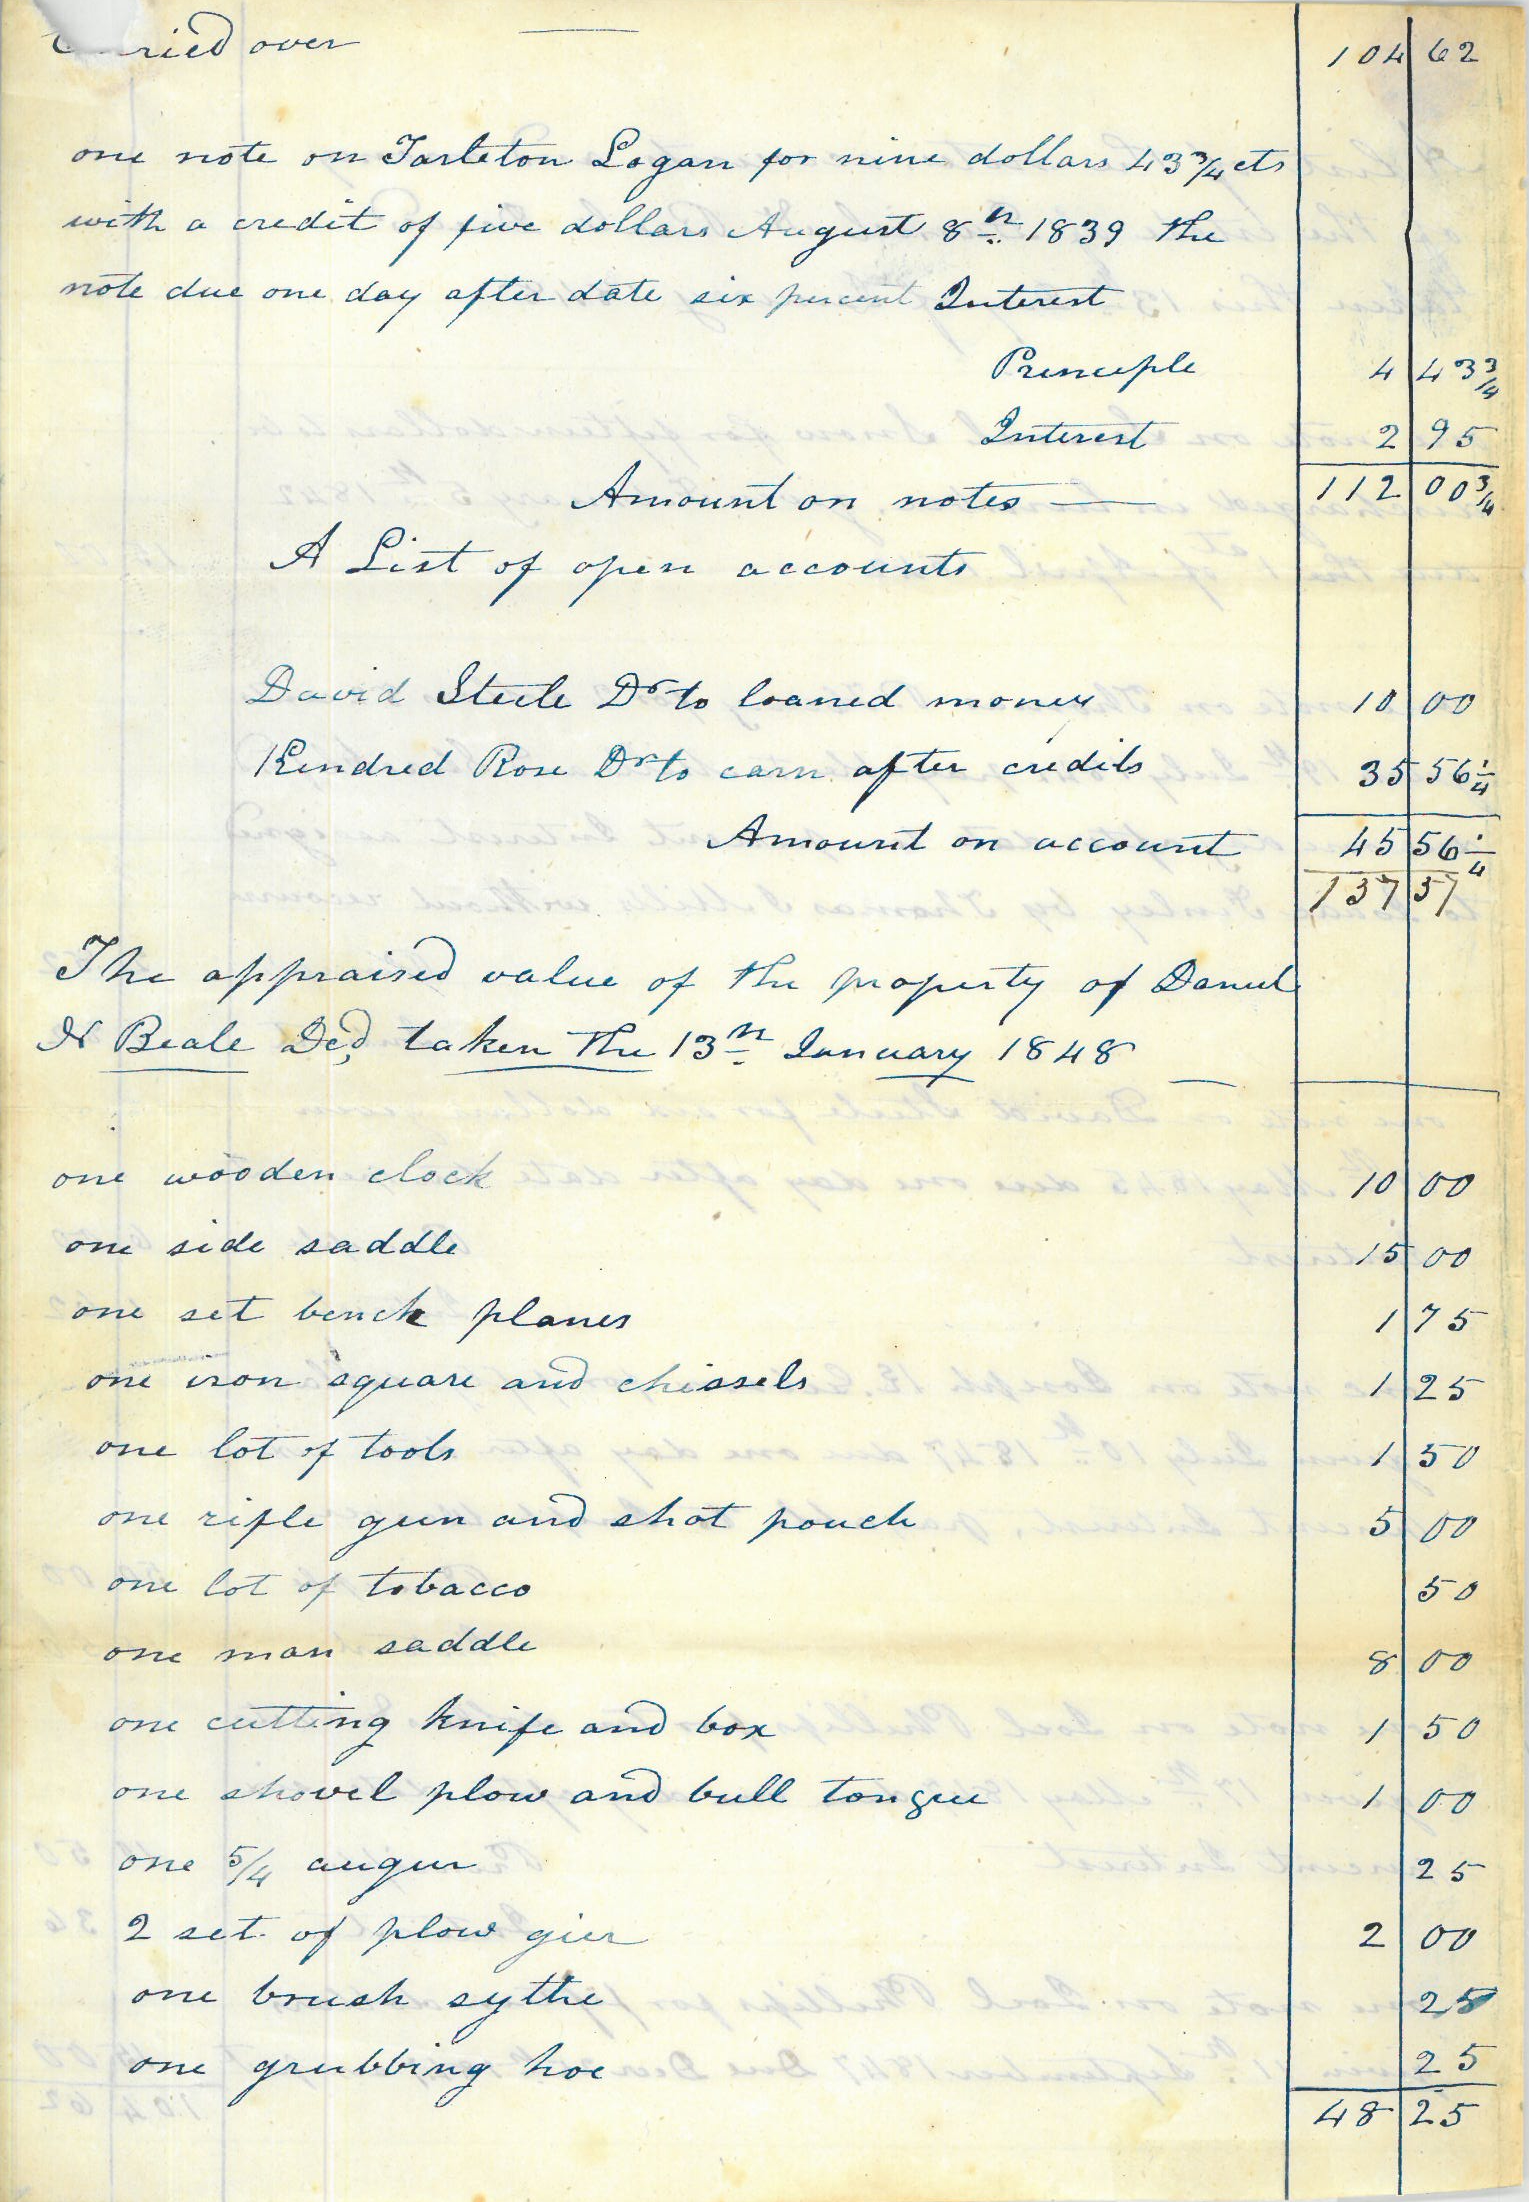 Carried over —— 104 62
one note on Tarleton Logan for nine dollars 43 3/4 cts
with a credit of five dollars August 8th 1839 the
note due one day after date six percent Interest
Principle 4 43 3/4
Interest 2 95
Amount on notes —— 112 00 3/4
A List of open accounts
David Steele Dr to loaned money 10 00
Kendred Rose Dr to corn after credits 35 56 1/4
Amount on account 45 56 1/4
137 57
The appraised value of the property of Daniel
N Beale Decd taken the 13th January 1848 —
one wooden clock 10 00
one side saddle 15 00
one set bench planes 1 75
one iron square and chissels 1 25
one lot of tools 1 50
one rifle gun and shot pouch 5 00
one lot of tobacco 50
one man saddle 8 00
one cutting knife and box 1 50
one shovel plow and bull tongue 1 00
one 5/4 augur 25
2 set of plow gier 2 00
one brush sythe 25
one grubbing hoe 25
48 25